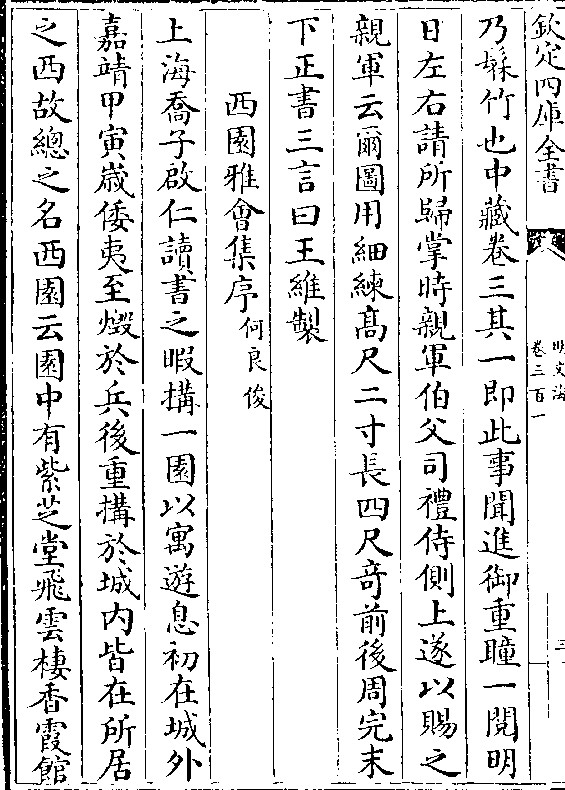 欽定四庫全書
明文海
卷三百一
三
乃緐竹也中藏卷三其一即此事聞進御重瞳一閱明
日左右請所歸掌時親軍伯父司禮侍側上遂以賜之
親軍云爾圖用細練髙尺二寸長四尺竒前後周完末
下正書三言曰王維製
西園雅會集序何良俊
上海喬子啟仁讀書之暇搆一園以寓遊息初在城外
嘉靖甲寅嵗倭夷至燬於兵後重搆於城内皆在所居
之西故總之名西園云園中有紫芝堂飛雲棲香霞館